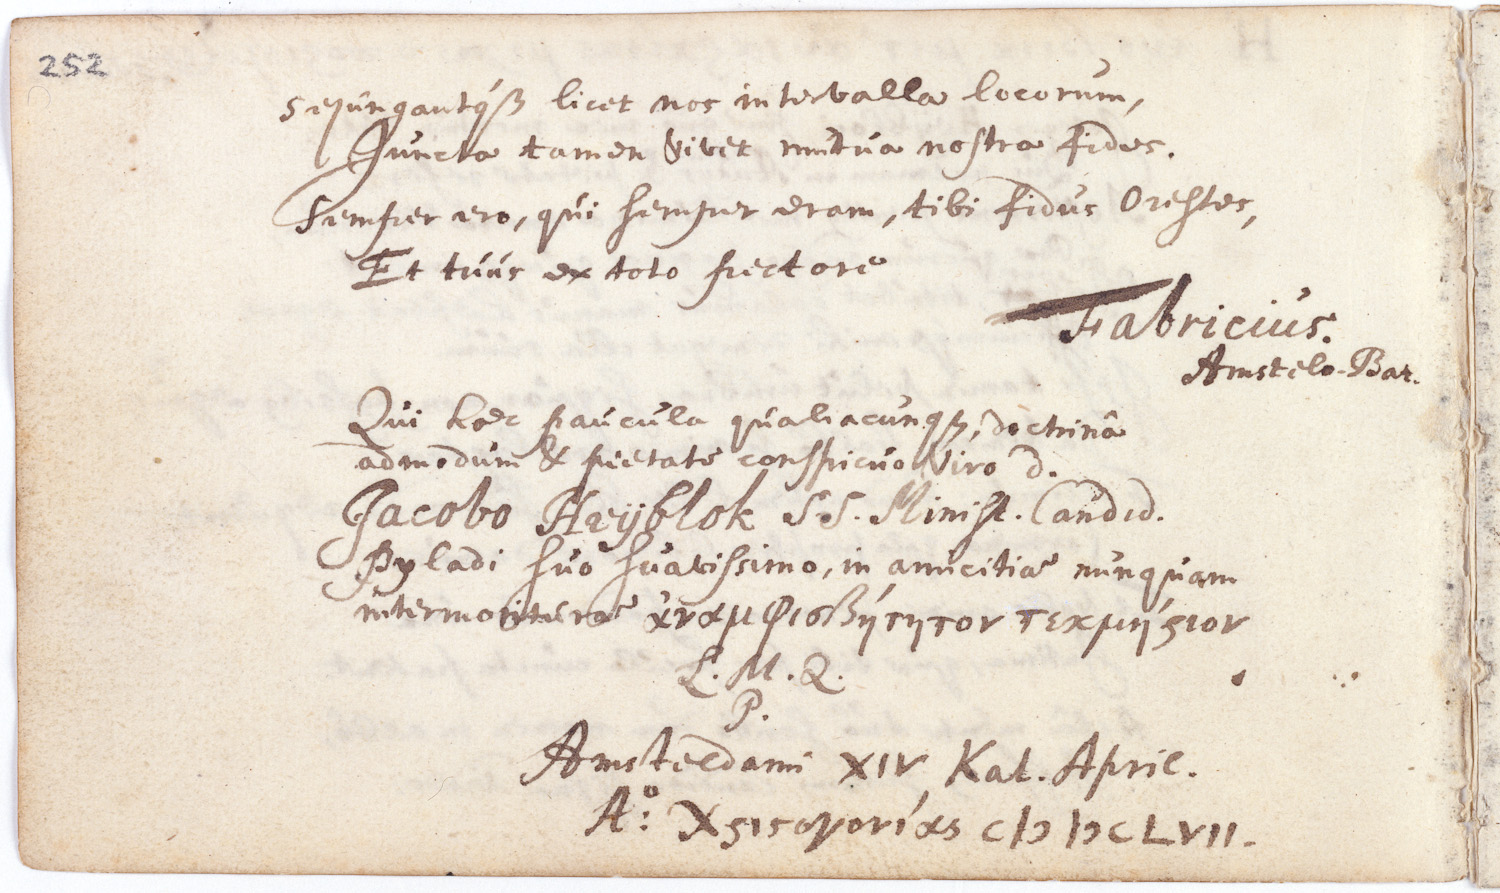 252
Sejungantqꝫ licet nos intervalla locorum,
Juncta tamen vivet mutua nostra fides.
Semper ero, qui semper eram, tibi fidus Orestes,
Et tuus ex toto pectore
Fabricius.
Amstelo-Bat.
Qui hæc paucula qualiacunqꝫ, doctrinâ
admodum & pietate conspicuo Viro D.
Jacobo Heÿblok S S. Minist. Candid.
Pyladi suo suavissimo, in amicitiæ nunquam
intermorituræ ἀναμφισβήτητον τεκμήριον
L. M. Q.
P.
Amsteldami XIV Kal. April.
A:º Χριστογονίας cIↄ Iↄc LVII.